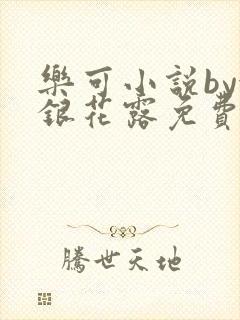 樂可小說by
銀花露免費
騰世天地